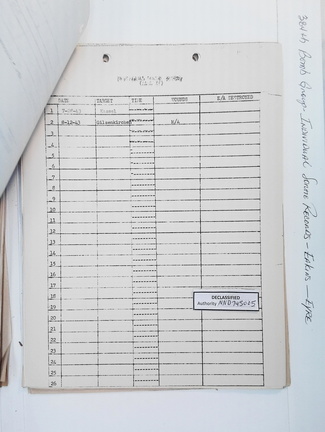 DATE TARGET TIME E/A DESTROYED
1
2 8-12-43 Gilsenkirchen N/A
3
4
5
6
7
8
9
10
11
12
13
14
15
16
17
18
19
20
21
22
23
24
25
26
DECLASSIFIED
Authority NND 745005
384th Bomb Group - Individual Sortie Records - Eakins - Eyre